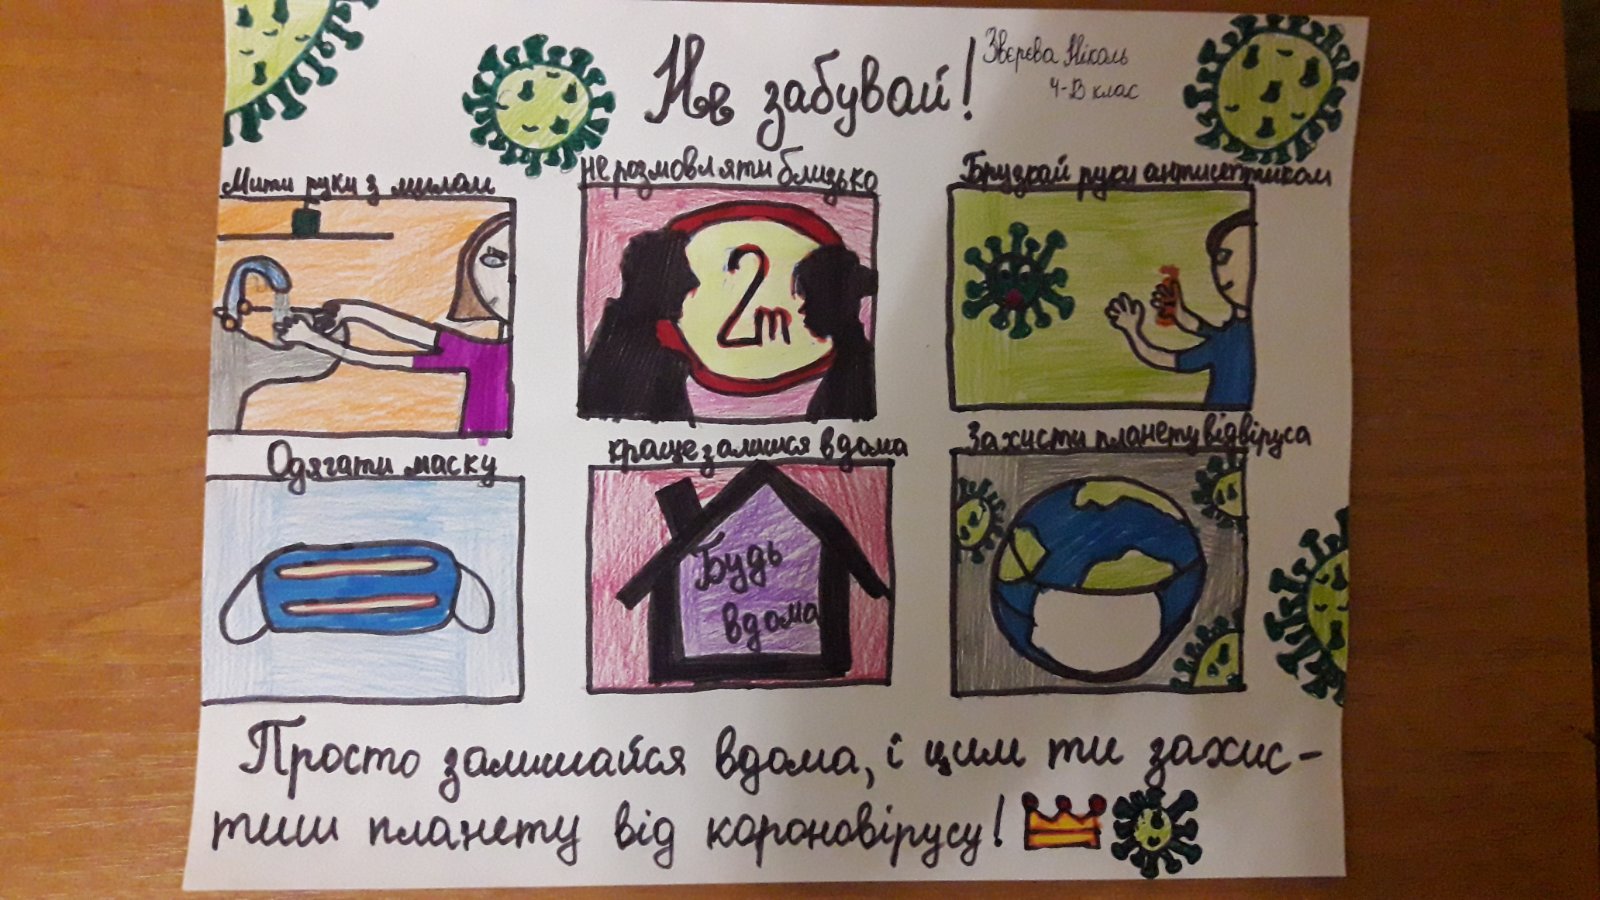 Не забувай!
Звєрєва Ніколь
4-В клас
Мити руки з милом
не розмовляти близько
Бризкай руки антисептиком
2m
Одягати маску
краще залишся вдома
Захисти планету від віруса
Будь
вдома
Просто залишайся вдома, і цим ти захис-
тиш планету від короновірусу!